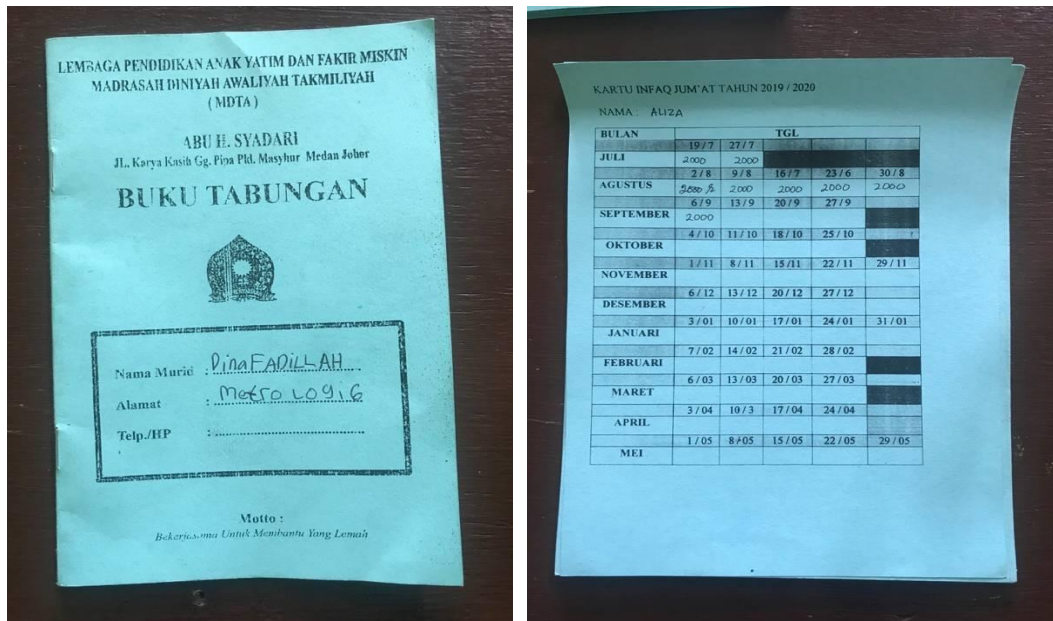 LEMBAGA PENDIDIKAN ANAK YATIM DAN FAKIR MISKIN
MADRASAH DINIYAH AWALIYAH TAKMILIYAH
( MDTA )
ABU H. SYADARI
JL. Karya Kasih Gg. Pipa Pld. Masyhur Medan Johor
BUKU TABUNGAN
Nama Murid : Dina FADILLAH
Alamat : Metrologi 6
Telp./HP :
Motto :
Bekerjasama Untuk Membantu Yang Lemah
KARTU INFAQ JUM'AT TAHUN 2019 / 2020
NAMA : ALIZA
BULAN TGL
19 / 7 27 / 7
JULI 2000 2000
2 / 8 9 / 8 16 / 7 23 / 6 30 / 8
AGUSTUS 2000 2000 2000 2000 2000
6 / 9 13 / 9 20 / 9 27 / 9
SEPTEMBER 2.000
4 / 10 11 / 10 18 / 10 25 / 10
OKTOBER
1 / 11 8 / 11 15 /11 22 / 11 29 / 11
NOVEMBER
6 / 12 13 / 12 20 / 12 27 / 12
DESEMBER
3 / 01 10 / 01 17 / 01 24 / 01 31 / 01
JANUARI
7 / 02 14 / 02 21 / 02 28 / 02
FEBRUARI
6 / 03 13 / 03 20 / 03 27 / 03
MARET
3 / 04 10 / 3 17 / 04 24 / 04
APRIL
1 / 05 8 / 05 15 / 05 22 / 05 29 / 05
MEI